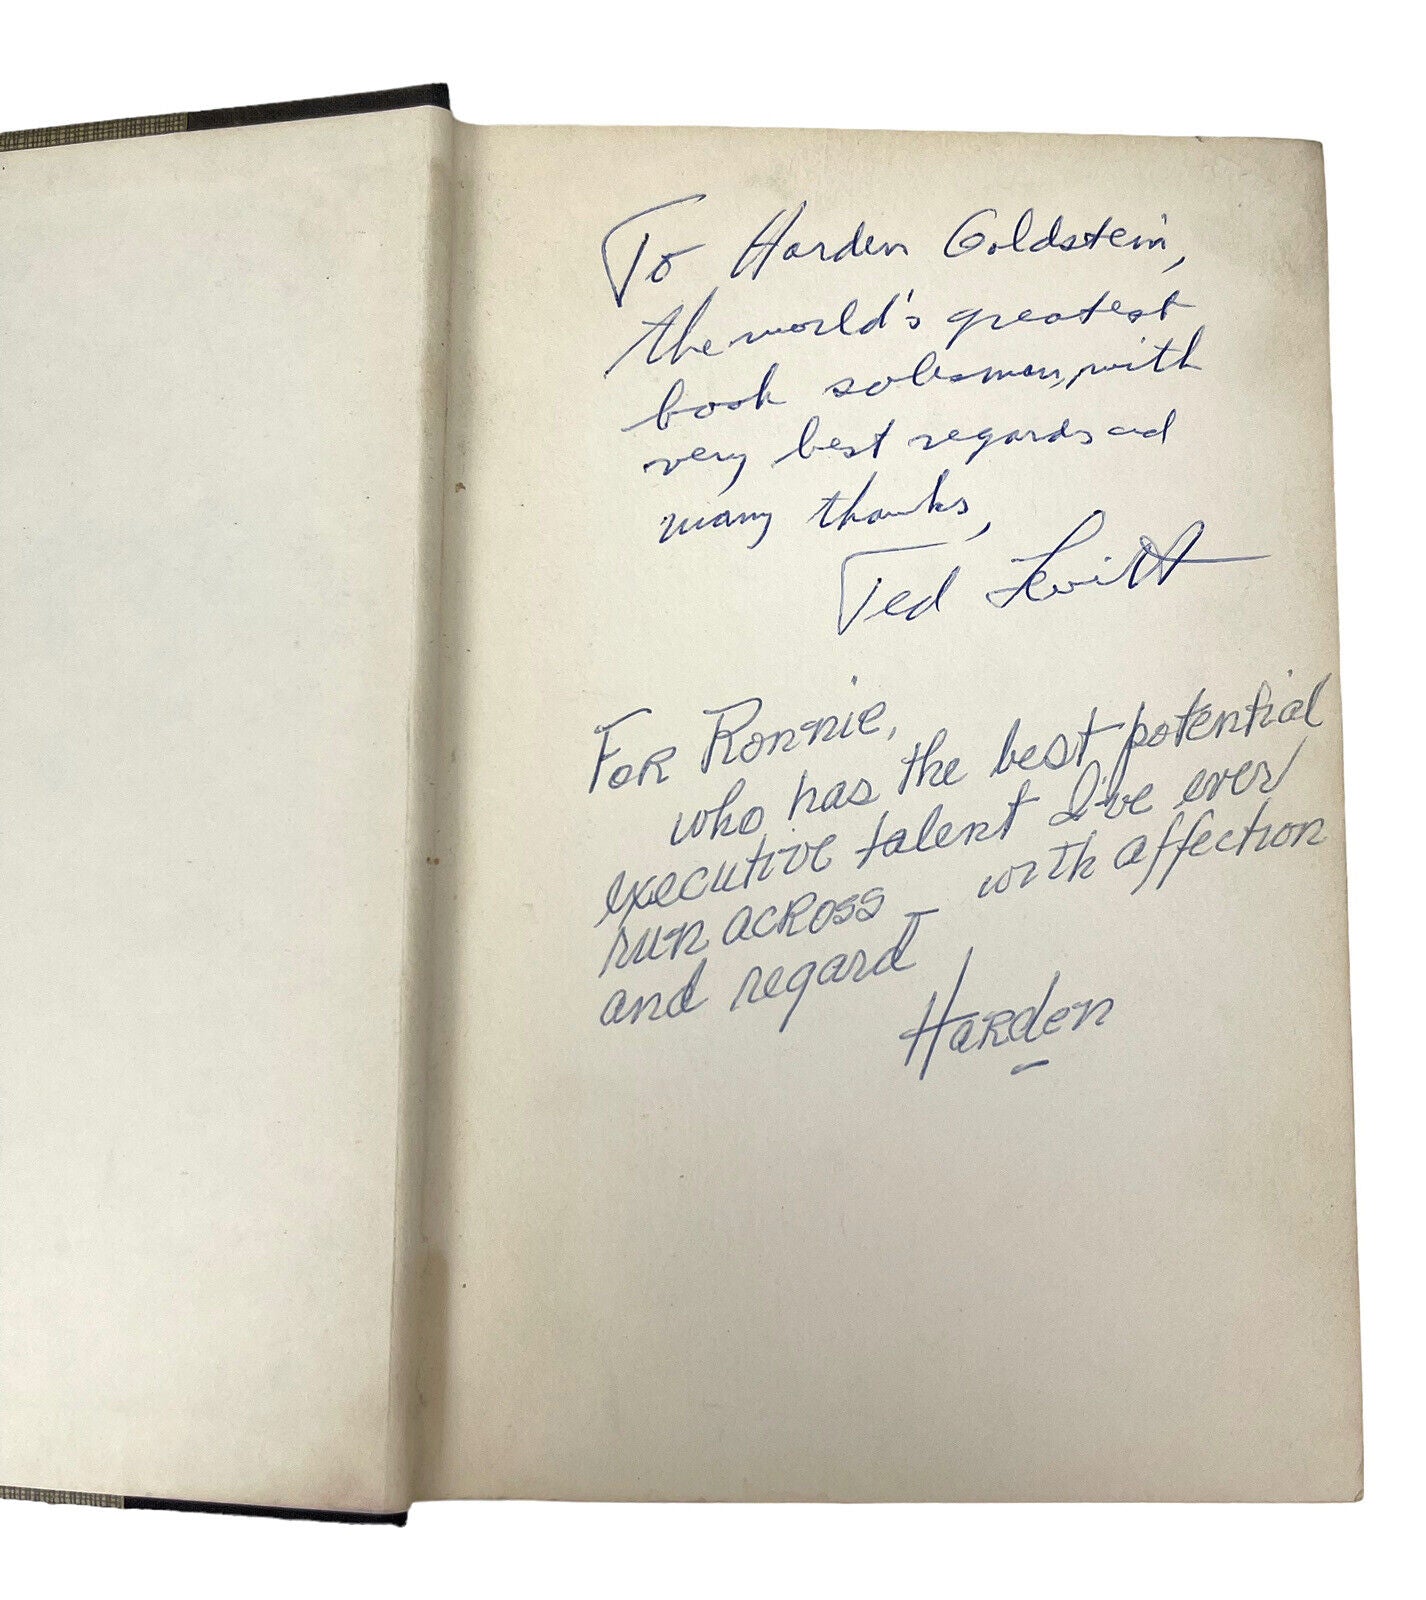 To Harden Goldstein,
the world's greatest
book salesman, with
very best regards and
many thanks,
Ted Levitt
For Ronnie,
who has the best potential
executive talent I've ever
run across _ with affection
and regard
Harden